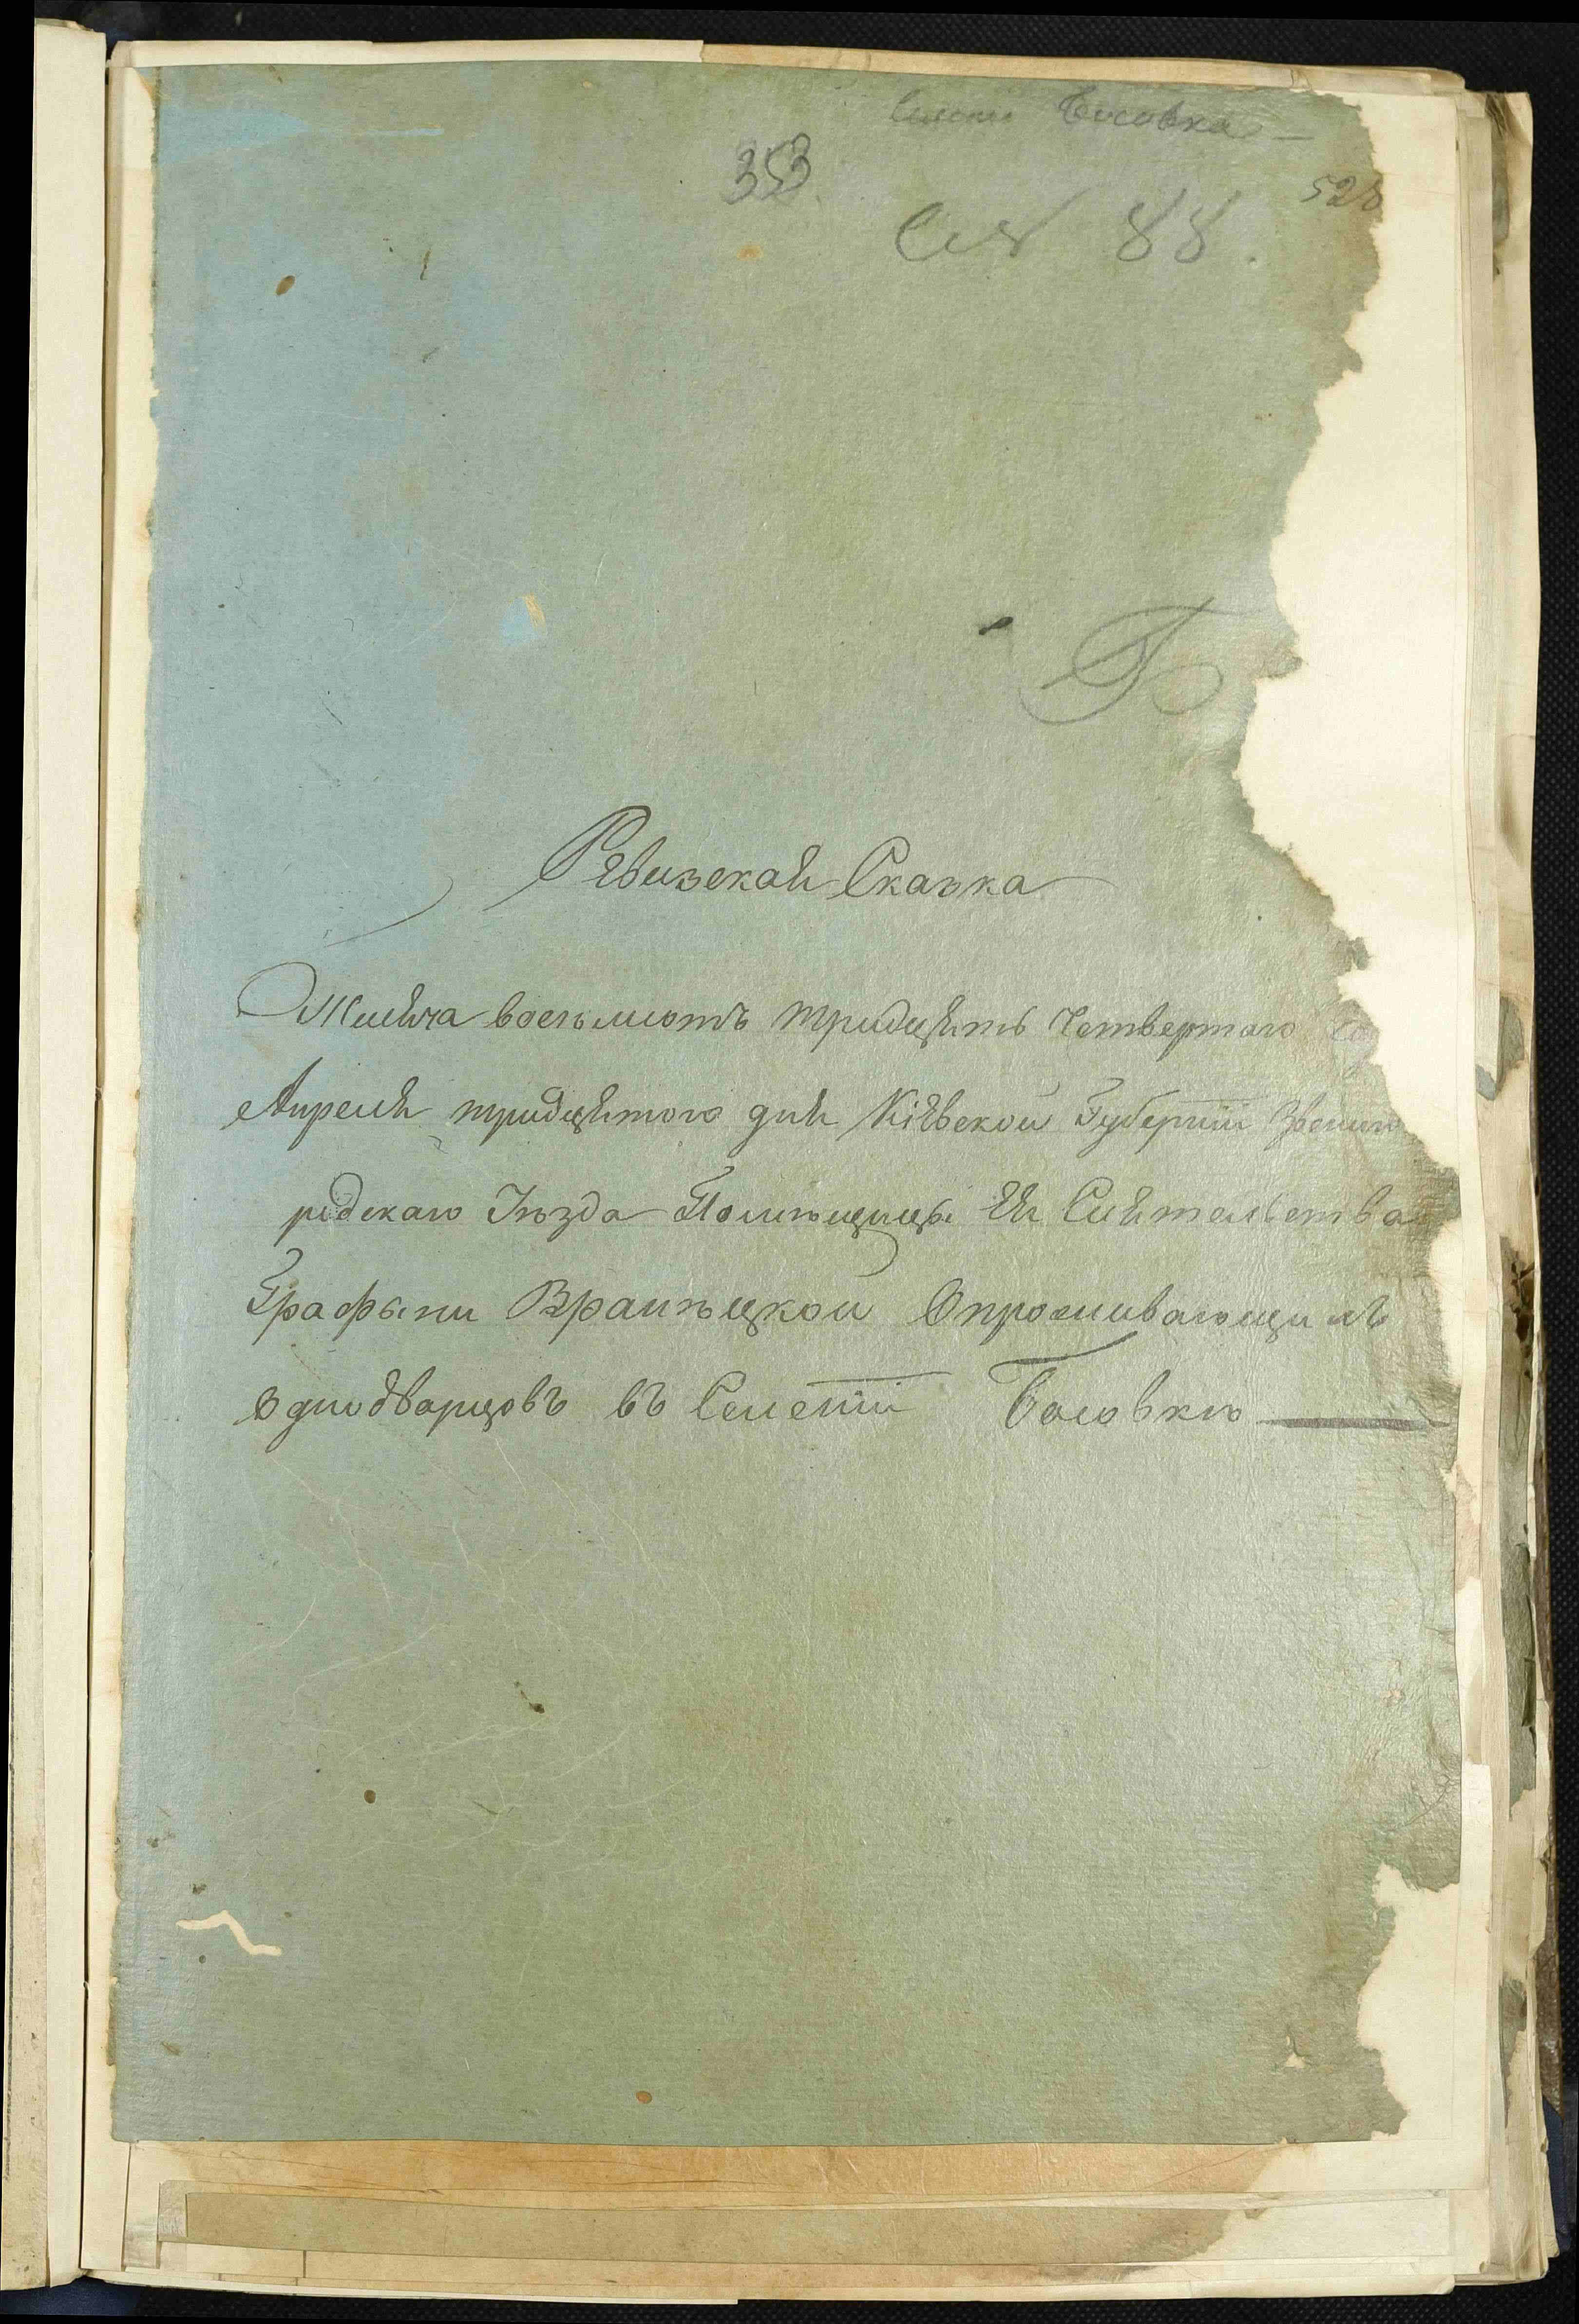 Босовка
353
528
88.
Б
Рѣвизская Сказка
Тысяча восемьсотъ тридцять Четвертаго го
Апреля тридцятого дня Кіѣвской Губерніи Звениго
родскаго Уѣзда Помѣщицы Ея Сиятельства
Графыни Враницкой Опроживающихъ
однодварцовъ въ Селеніи Босовкѣ